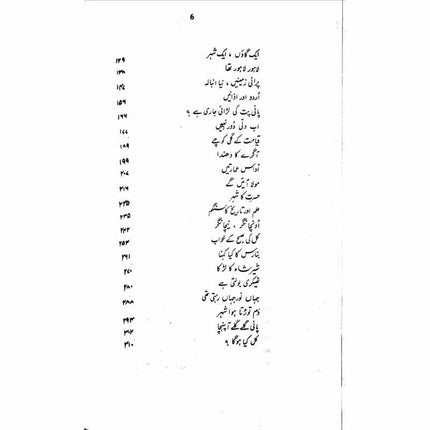 6
ایک گاؤں ، ایک شہر ۱۲۹
لاہور لاہور تھا ۱۳۸
پرانی زمینیں ، نیا انبالہ
اردو اور اذانیں ۱۵۶
پانی پت کی لڑائی جاری ہے ؟ ۱۶۶
اب دلّی دُور نہیں ۱۷۷
قیامت کے گلی کوچے ۱۸۹
آگرے کا دھندا ۱۹۹
اداس عمارتیں ۲۰۷
مولا آئیں گے ۲۱۶
حسرت کا شہر ۲۲۵
علم اور تاریخ کا سنگم ۲۳۵
اونچا نگر ، نیچا نگر
کل کی صبح کے خواب ۲۵۴
بنارس کا کیا کہنا ۲۶۱
شیر شاہ کا لڑکا ۲۷۰
ٹھیکری بولتی ہے ۲۸۰
جہاں نور جہاں رہتی تھی ۲۸۸
دم توڑتا ہوا شہر ۲۹۴
پانی گلے گلے آ پہنچا
کل کیا ہو گا ؟ ۳۱۰